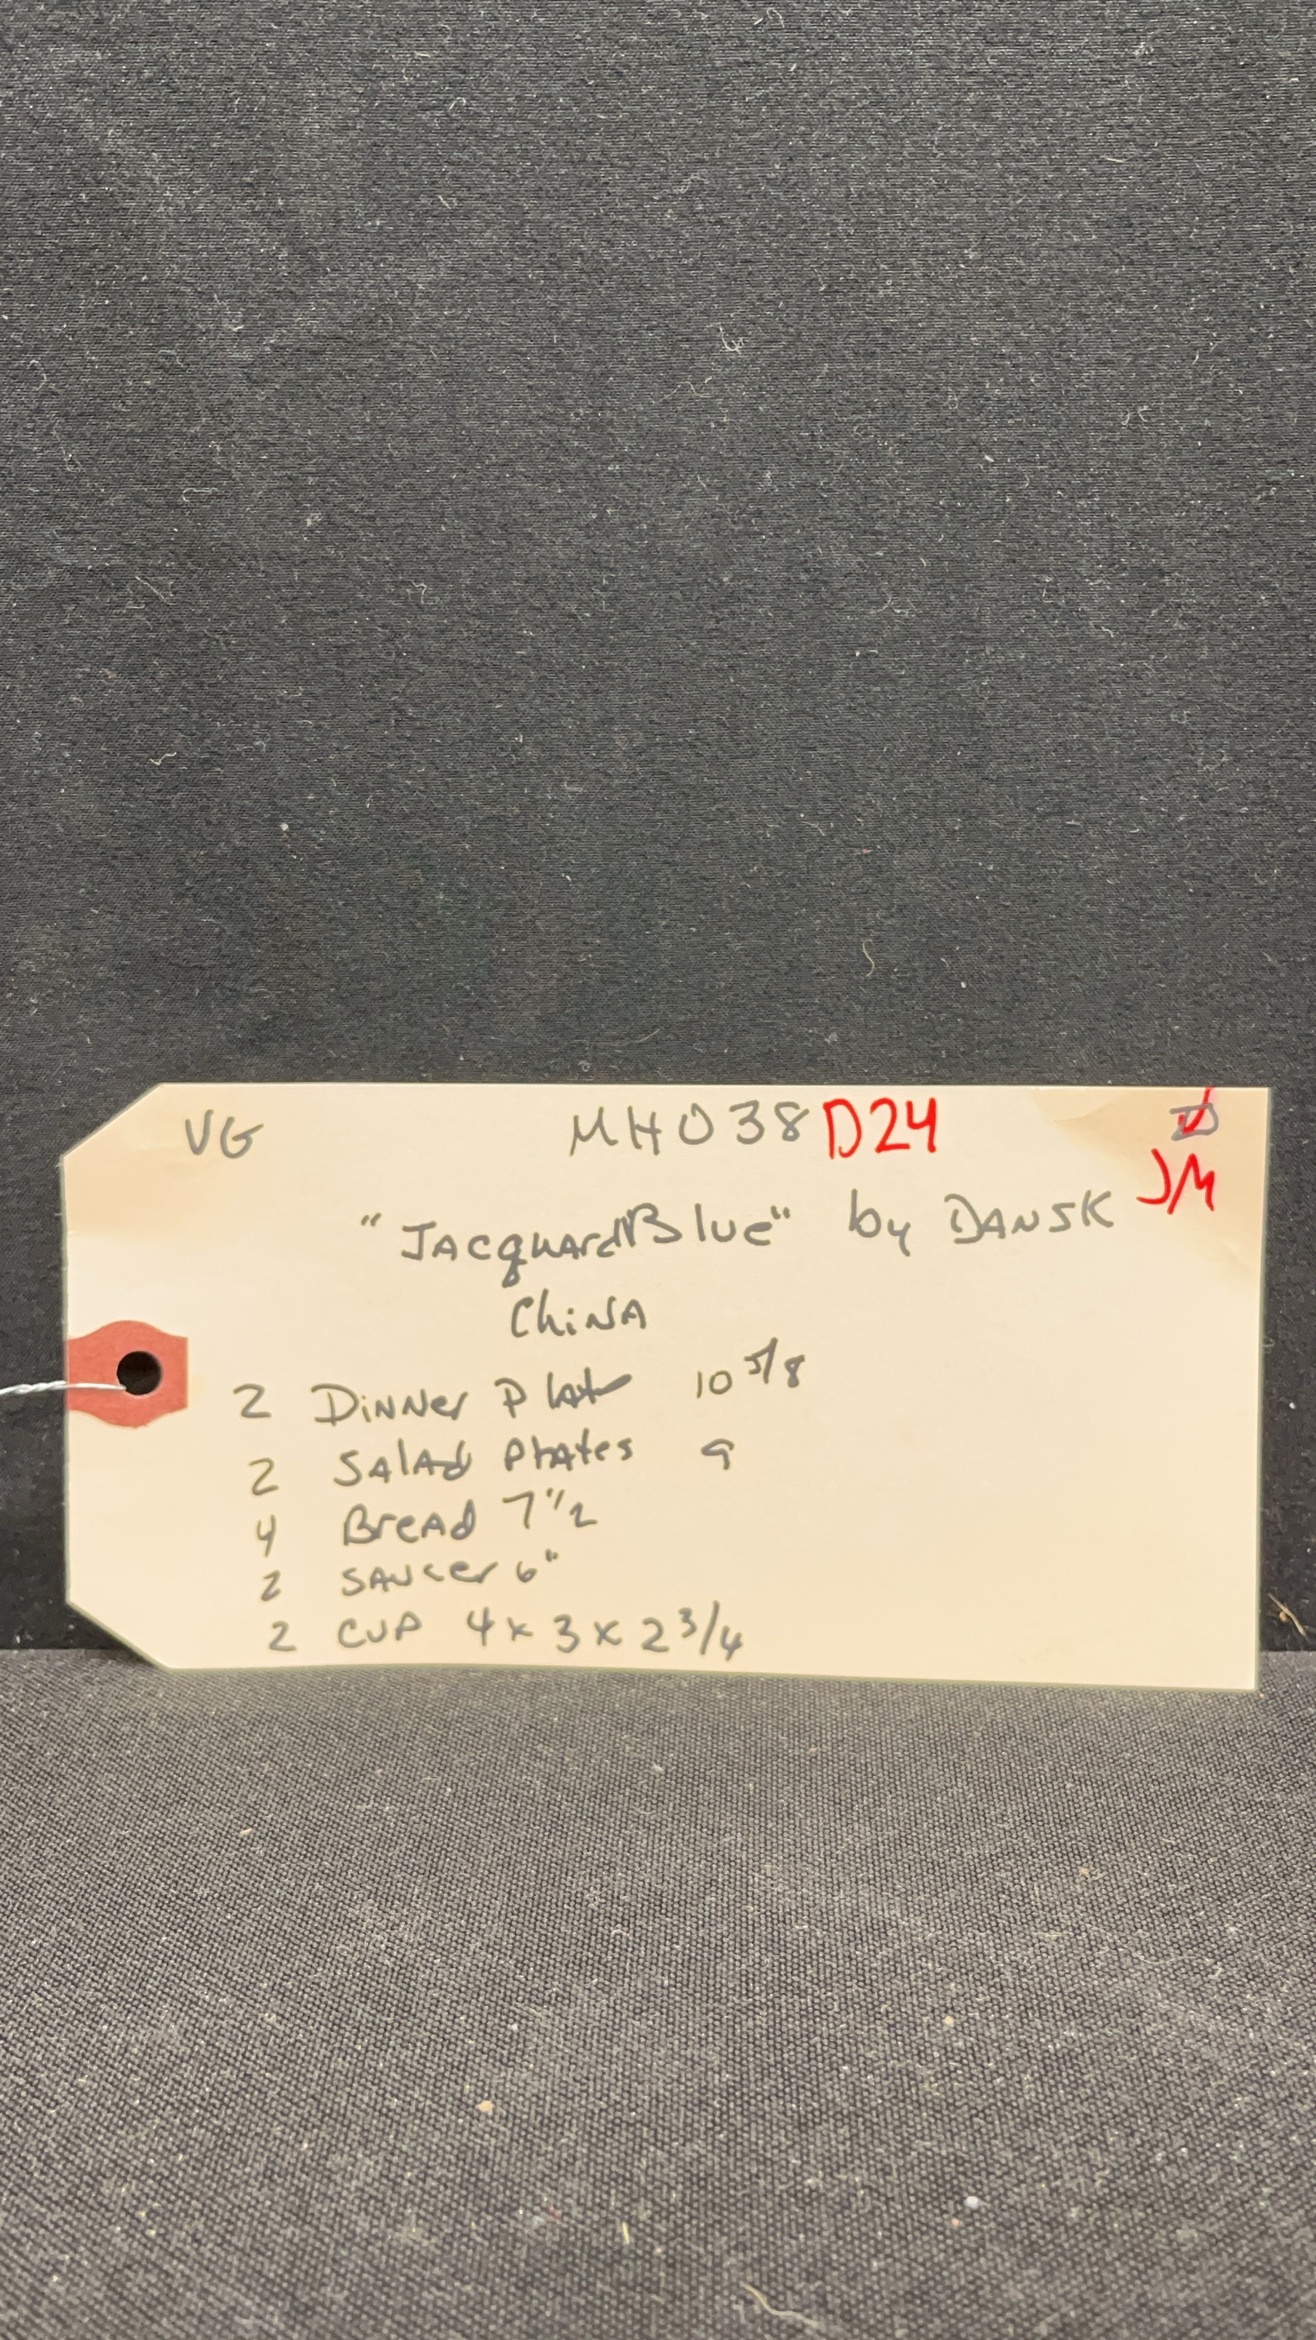 VG MH038 D24
JM
"Jacquard Blue" by DANSK
China
2 Dinner Plate 10 5/8
2 Salad Plates 9
4 Bread 7 1/2
2 Saucer 6"
2 CUP 4 x 3 x 2 3/4